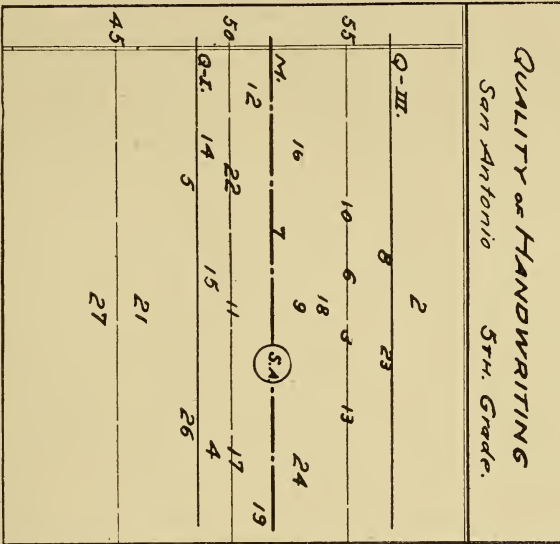 QUALITY OF HANDWRITING
San Antonio 5TH. Grade.
2
Q-III. 8 23
55 10 6 3 13
18
16 9 24
M. 7 S.A
12 19
50 22 11 17
Q-I. 14 15 4
5 26
21
45
27